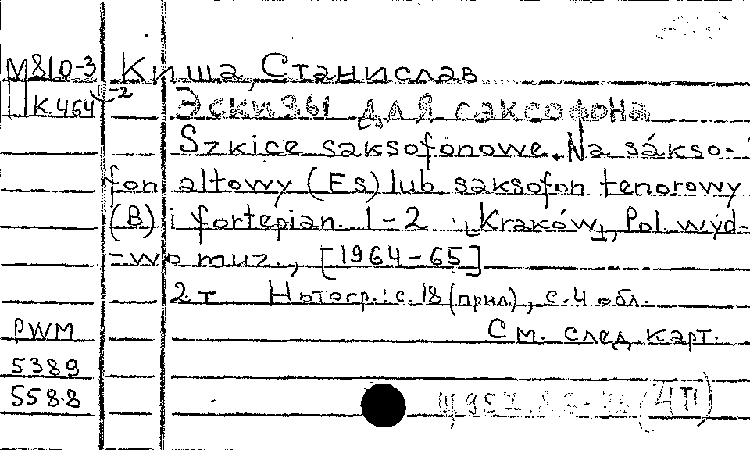 М810-3 Киша, Станислав
К464 -2 Эскизы для саксофона
Szkice saksofonowe. Na sakso-
fon altowy (Es) lub saksofon tenorowy
(B) i fortepian. 1-2. Kraków, Pol. wyd-
-wo muz., [1964-65]
2 т Нотогр.: с. 18 (прил.), с. 4 обл.
PWM См. след. карт.
5389
5588 (4П)